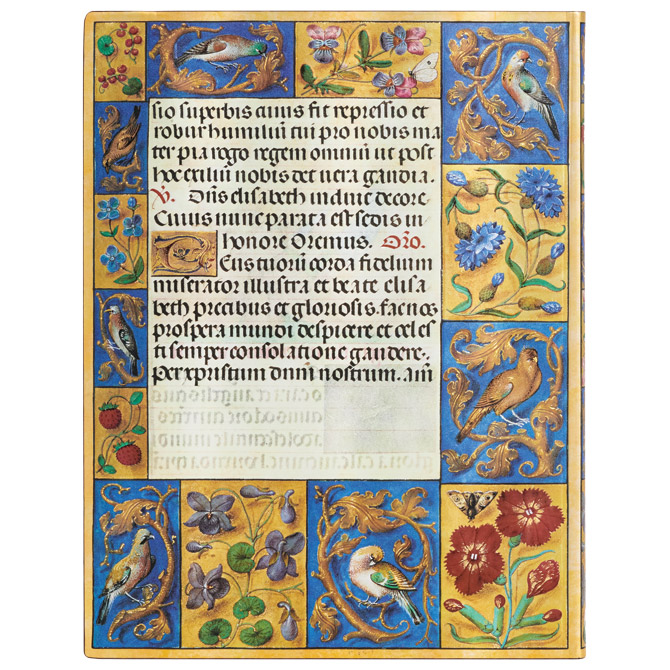 sio superbis cuius fit repressio et
robur humiliū cui pro nobis ma
ter pia rogo regem omniū ut post
hoc exiliū nobis det uera gaudia.
V. Dūs elisabeth induit decore.
Cuius nunc parata est sedis in
honore Oremus. Oro.
Deus tuorū corda fidelium
miserator illustra et beate elisa
beth precibus et gloriosis. fac nos
prospera mundi despicere et cel es
ti semper consolatione gaudere.
Per xpristum dnm nostrum. am